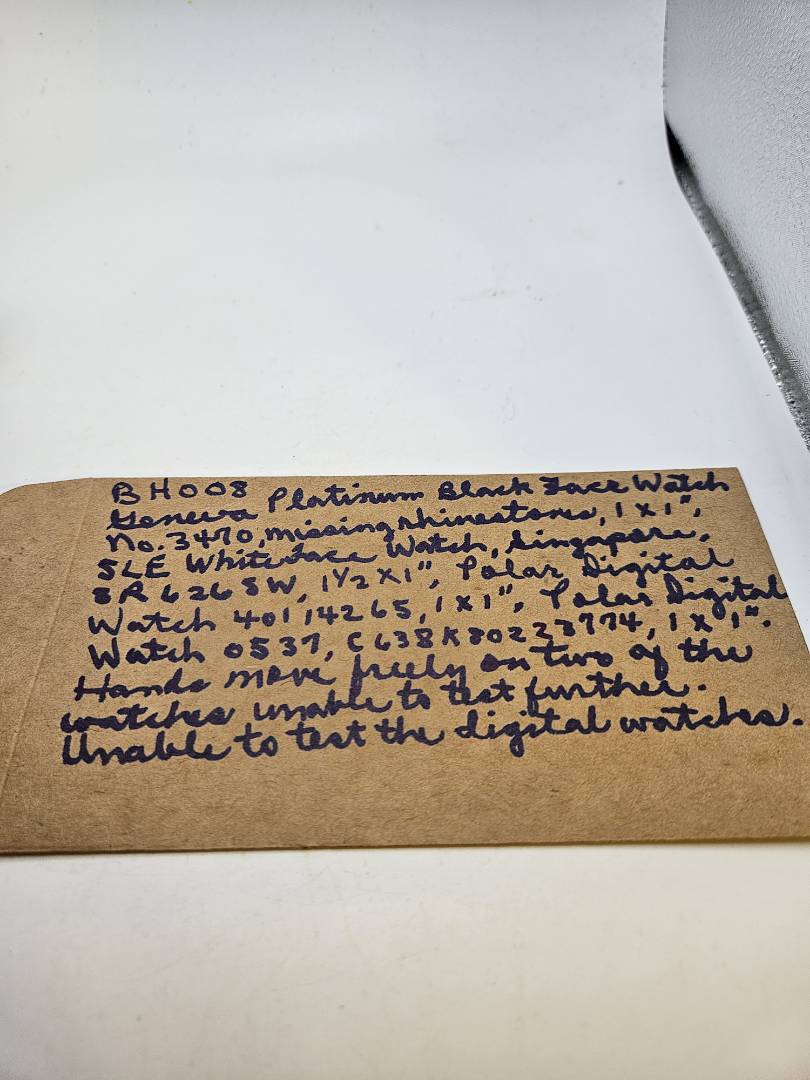 BH008
Geneva Platinum Black Face Watch
No. 3470, missing rhinestones, 1 x 1",
SLE White Face Watch, Singapore,
SR626SW, 1 1/2 x 1", Polar Digital
Watch 40114265, 1 x 1", Polar Digital
Watch 0537, C638K80223774, 1 x 1".
Hands move freely on two of the
watches unable to test further.
Unable to test the digital watches.